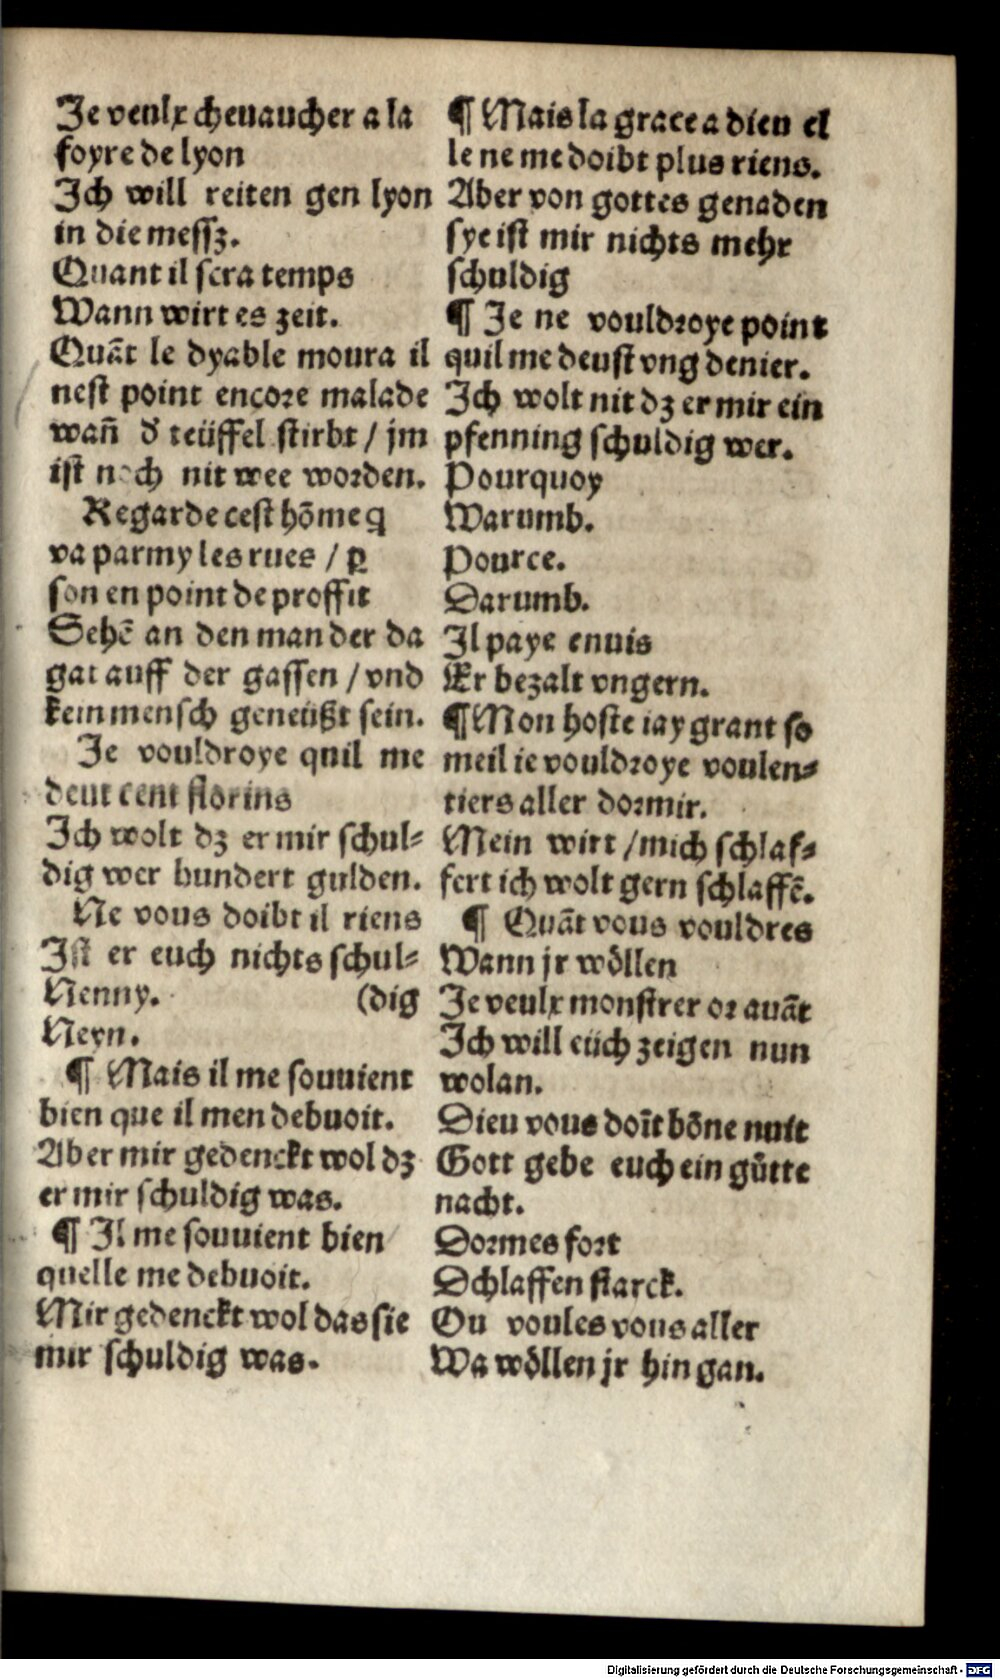 Je veulx chevaucher a la
foyre de lyon
Ich will reiten gen lyon
in die messz.
Quant il sera temps
Wann wirt es zeit.
Quāt le dyable moura il
nest point encore malade
wañ d̕ teüffel stirbt / jm
ist noch nit wee worden.
Regarde cest hōme q
va parmy les rues / ꝑ
son en point de proffit
Sehē an den man der da
gat auff der gassen / vnd
kein mensch geneüßt sein.
Je vouldroye quil me
deut cent florins
Ich wolt dz er mir schul⸗
dig wer hundert gulden.
Ne vous doibt il riens
Ist er euch nichts schul⸗
Nenny. (dig
Neyn.
¶ Mais il me souuient
bien que il men debuoit.
Aber mir gedenckt wol dz
er mir schuldig was.
¶ Il me souuient bien
quelle me debuoit.
Mir gedenckt wol das sie
mir schuldig was.
¶ Mais la grace a dieu el
le ne me doibt plus riens.
Aber von gottes genaden
sye ist mir nichts mehr
schuldig
¶ Je ne vouldroye point
quil me deust vng denier.
Ich wolt nit dz er mir ein
pfenning schuldig wer.
Pourquoy
Warumb.
Pource.
Darumb.
Il paye enuis
Er bezalt vngern.
¶ Mon hoste iay grant so
meil ie vouldroye voulen⸗
tiers aller dormir.
Mein wirt / mich schlaf⸗
fert ich wolt gern schlaffē.
¶ Quāt vous vouldres
Wann jr wöllen
Je veulx monstrer or auāt
Ich will eüch zeigen nun
wolan.
Dieu vous doīt bōne nuit
Gott gebe euch ein gůtte
nacht.
Dormes fort
Schlaffen starck.
Ou voules vous aller
Wa wöllen jr hin gan.
Digitalisierung gefördert durch die Deutsche Forschungsgemeinschaft - DFG